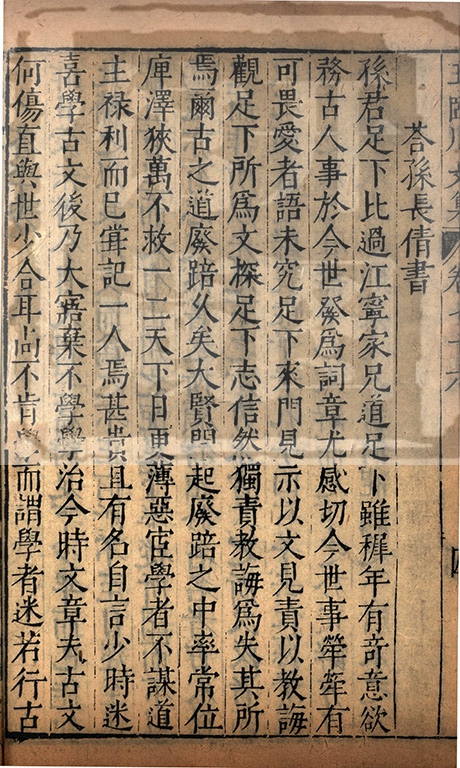 王臨川文集 卷七十六 四
荅孫長倩書
孫君足下比過江寧家兄道足下雖穉年有竒意欲
務古人事於今世發為詞章尤感切今世事犖犖有
可畏愛者語未究足下來門見示以文見責以教誨
觀足下所為文探足下志信然獨責教誨為失其所
焉爾古之道廢踣乆矣大賢閒起廢踣之中率常位
庳澤狹萬不救一二天下日更薄惡宦學者不謀道
主禄利而已甞記一人焉甚貴且有名自言少時迷
喜學古文後乃大寤棄不學學治今時文章夫古文
何傷直與世少合耳尚不肯學而謂學者迷若行古